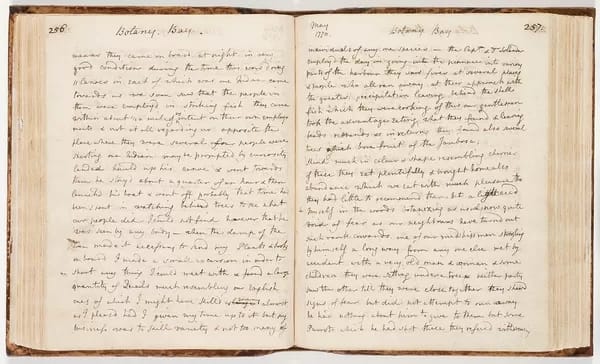 256. Botany Bay.
manner they came on board at night in very
good condition. during the time this was doing
11 canoes in each of which was one Indian came
towards us we soon saw that the people in
them were employd in striking fish they came
within about ½ mile of us intent on their own employ
ments & not at all regarding us. opposite the
place where they were several of our people were
shooting one Indian may be prompted by curiosity
landed hauld up his canoe & went towards
them he stayd about a quarter of an hour & then
launchd his boat & went off probably that time had
been spent in watching behind trees to see what
our people did I could not find however that he
was seen by any body — when the damp of the
Even made it necessary to send my Plants & books
on board I made a small excursion in order to
shoot any thing I could meet with & found a large
quantity of Quails much resembling our English
ones of which I might have killd almost
as I pleasd had I given my time up to it but my
business was to kill variety & not too many
May
1770. Botany Bay. 257.
individuals of any one species — the Captn & Dr Solander
employd the day in going with the pinnance into various
parts of the harbour they saw fires at several places
& people who all ran away at their approach with
the greatest precipitation leaving behind the shell
fish which they were cooking of this our gentlemen
took the advantage eating what they found & leaving
beads ribbands &c in return they found also several
trees which bore fruit of the Jambosa
kind much in colour & shape resembling cherries
of these they eat plentifully & brought home also
abundance which we eat with much pleasure tho
they had little to recommend them but a light acid
himself in the woods botanizing as usual now quite
void of fear as our neighbours have turnd out
such rank cowards. one of our midshipmen straying
by himself a long way from any one else met by
accident with a very old man & woman & some
children they were setting under a tree & neither party
saw the other till they were close together they shewd
signs of fear but did not attempt to run away
he had nothing about him to give to them but some
Parrots which he had shot these they refusd withdrawing